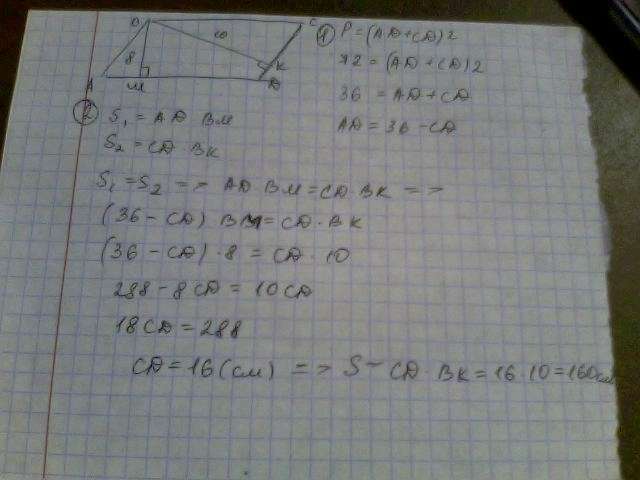 B C
10
8
K
A M D
① P = (AD + CD) 2
72 = (AD + CD) 2
36 = AD + CD
AD = 36 - CD
② S₁ = AD · BM
S₂ = CD · BK
S₁ = S₂ => AD · BM = CD · BK =>
(36 - CD) BM = CD · BK
(36 - CD) · 8 = CD · 10
288 - 8CD = 10CD
18CD = 288
CD = 16 (см) => S = CD · BK = 16 · 10 = 160см